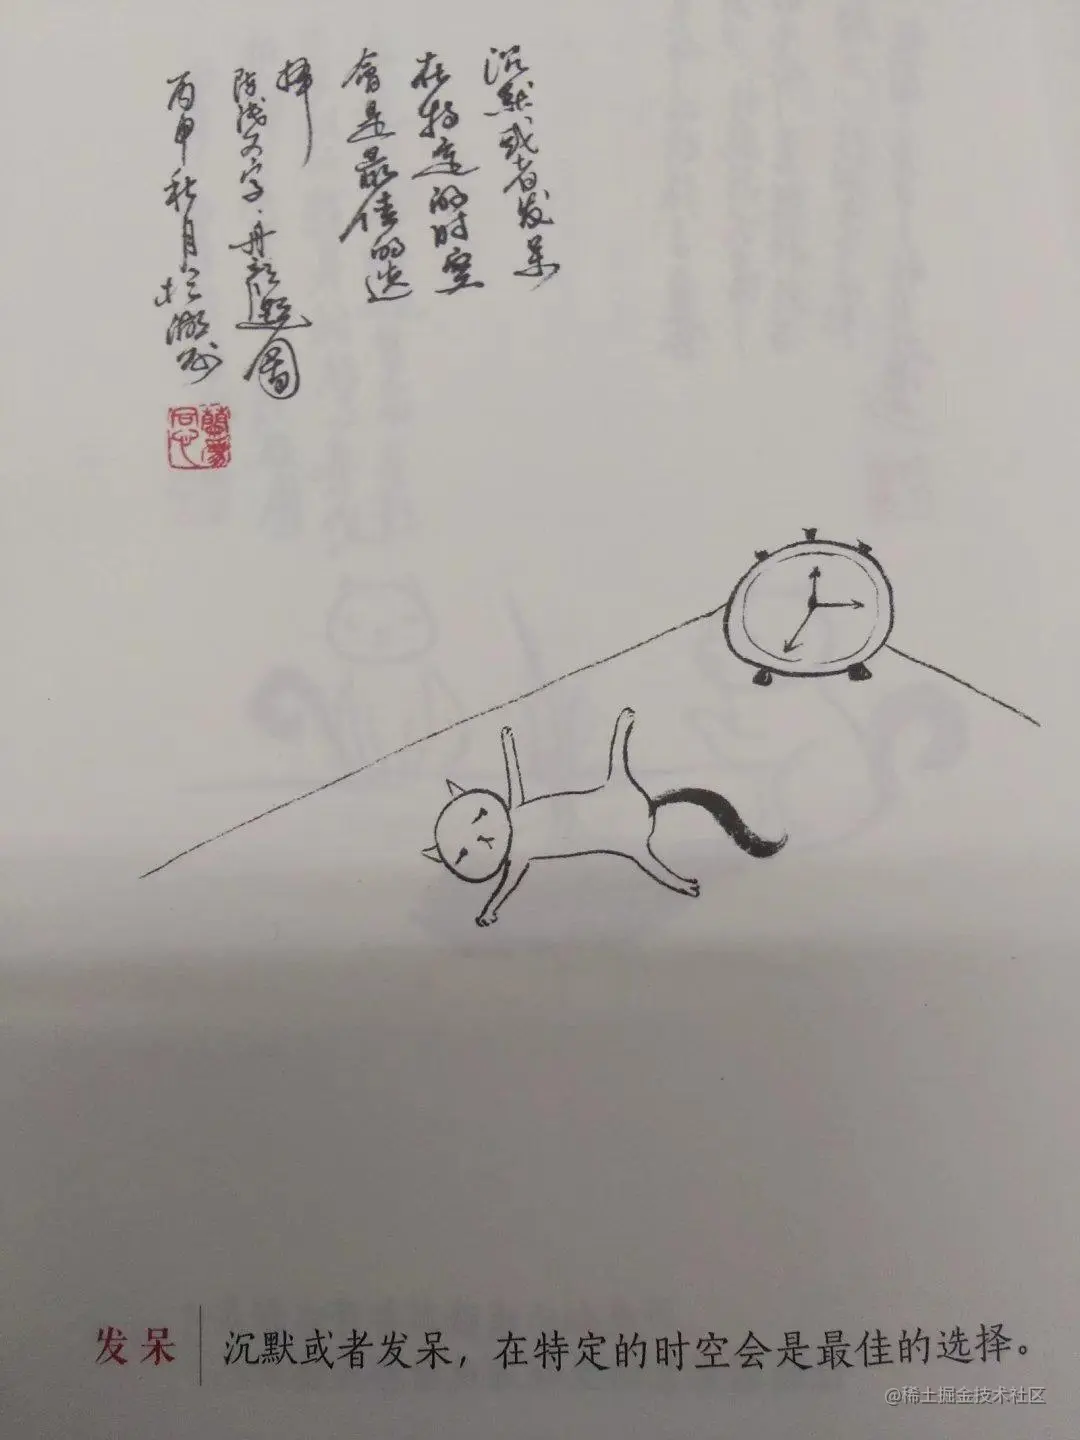 沉默或者发呆
在特定的时空
會是最佳的选
择
陈浅文字·丹
丙申秋月於
发呆
沉默或者发呆，在特定的时空会是最佳的选择。
@稀土掘金技术社区